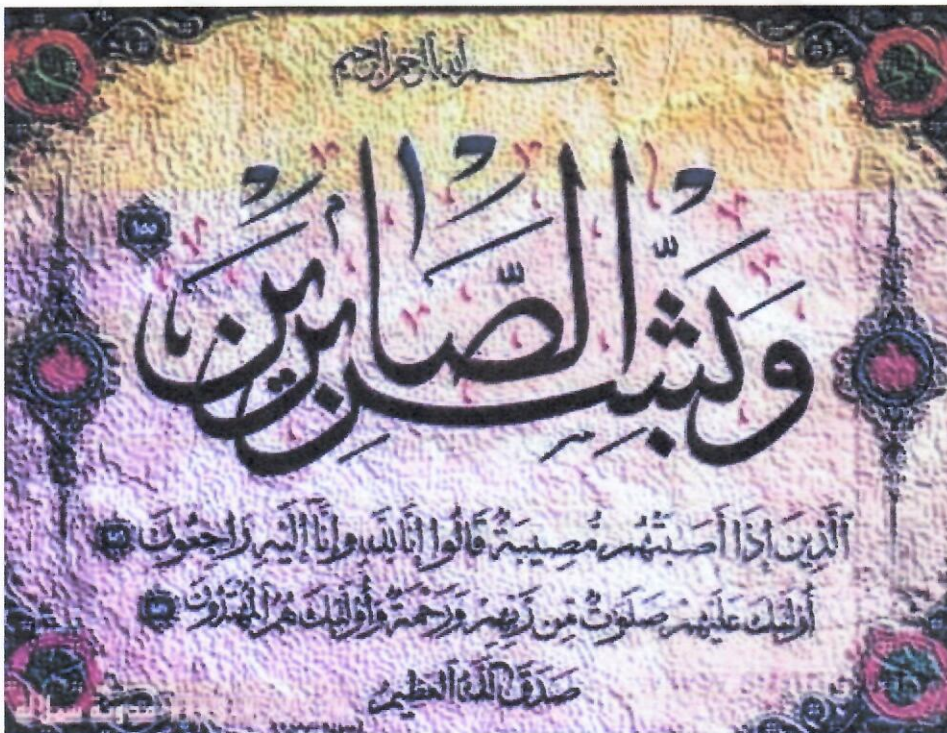 بسم الله الرحمن الرحيم
وَبَشِّرِ الصَّابِرِينَ ١٥٥
ٱلَّذِينَ إِذَا أَصَـٰبَتْهُم مُّصِيبَةٌ قَالُوا إِنَّا لِلَّهِ وَإِنَّا إِلَيْهِ رَاجِعُونَ
أُوْلَـٰئِكَ عَلَيْهِمْ صَلَوَٰتٌ مِّن رَّبِّهِمْ وَرَحْمَةٌ وَأُوْلَـٰئِكَ هُمُ الْمُهْتَدُونَ
صَدَقَ اللَّهُ الْعَظِيمُ